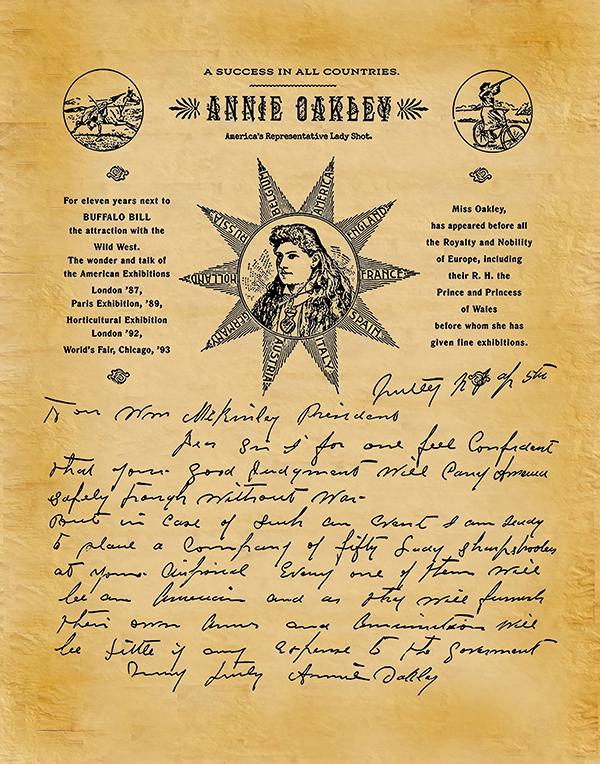 A SUCCESS IN ALL COUNTRIES.
ANNIE OAKLEY
America's Representative Lady Shot.
For eleven years next to
BUFFALO BILL
the attraction with the
Wild West.
The wonder and talk of
the American Exhibitions
London '87,
Paris Exhibition, '89,
Horticultural Exhibition
London '92,
World's Fair, Chicago, '93
BELGIUM
AMERICA
ENGLAND
FRANCE
SPAIN
ITALY
AUSTRIA
GERMANY
HOLLAND
RUSSIA
Miss Oakley,
has appeared before all
the Royalty and Nobility
of Europe, including
their R. H. the
Prince and Princess
of Wales
before whom she has
given fine exhibitions.
Nutley N.J. Ap 5th
To Hon Wm McKinley President
Dear Sir I for one feel Confident
that your good judgment will carry America
safely through without War—
But in case of such an event I am ready
to place a Company of fifty lady sharpshooters
at your disposal Every one of them will
be an American and as they will furnish
their own Arms and Ammunition will
be little if any expense to the Government
Very truly Annie Oakley